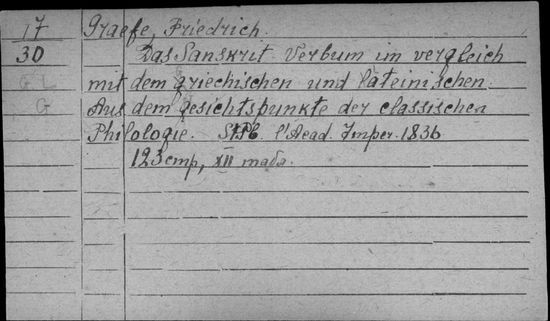 17 Graefe, Friedrich.
30 Das Sanskrit Verbum im vergleich
G L mit dem griechischen und lateinischen.
G Aus dem gesichtspunkte der classischen
Philologie. StPb. l'Acad. Imper. 1836
123 стр, XII табл.